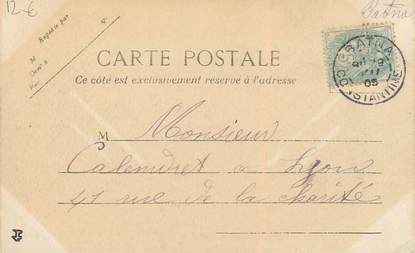 12 €
Batna
CARTE POSTALE
Ce côté est exclusivement réservé à l'adresse
BATNA
05
CONSTANTINE
M
Monsieur
Calendret a Lyon
41 rue de la charité